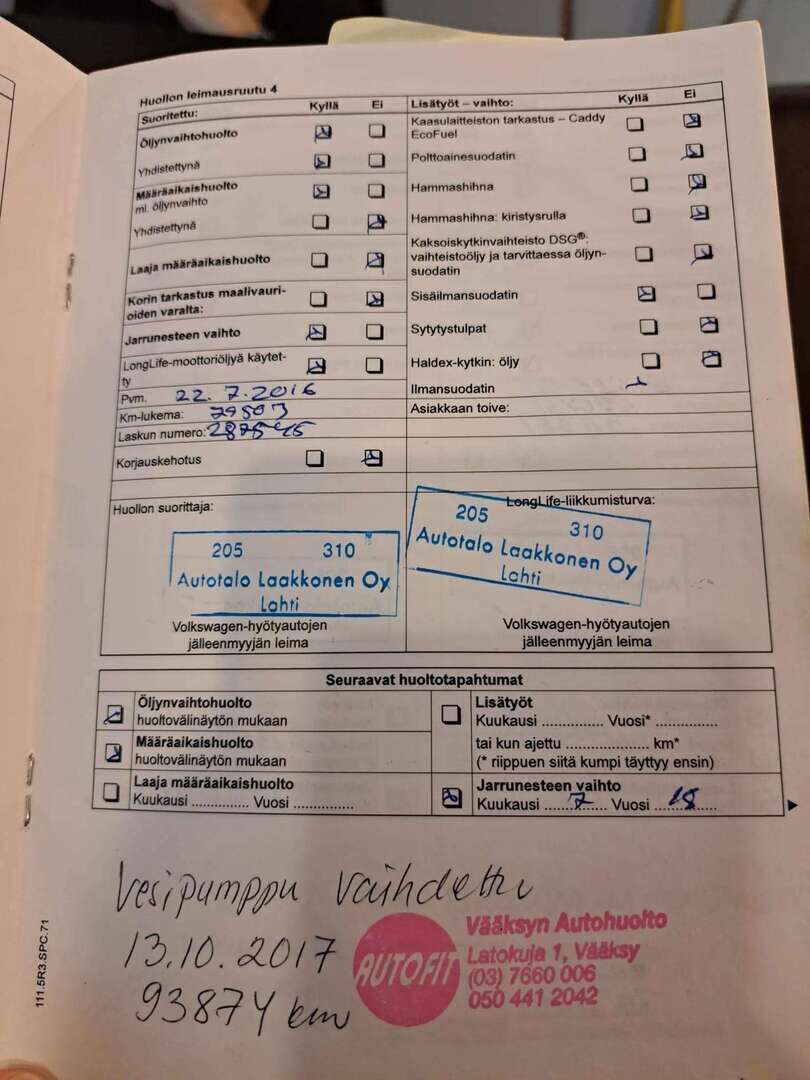 Huollon leimausruutu 4
Suoritettu: Kyllä Ei
Öljynvaihtohuolto
Yhdistettynä
Määräaikaishuolto
ml. öljynvaihto
Yhdistettynä
Laaja määräaikaishuolto
Korin tarkastus maalivauri-
oiden varalta:
Jarrunesteen vaihto
LongLife-moottoriöljyä käytet-
ty
Pvm. 22.7.2016
Km-lukema:
Laskun numero:
Korjauskehotus
Lisätyöt – vaihto: Kyllä Ei
Kaasulaitteiston tarkastus – Caddy
EcoFuel
Polttoainesuodatin
Hammashihna
Hammashihna: kiristysrulla
Kaksoiskytkinvaihteisto DSG®:
vaihteistoöljy ja tarvittaessa öljyn-
suodatin
Sisäilmansuodatin
Sytytystulpat
Haldex-kytkin: öljy
Ilmansuodatin
Asiakkaan toive:
Huollon suorittaja:
205 310
Autotalo Laakkonen Oy
Lahti
Volkswagen-hyötyautojen
jälleenmyyjän leima
LongLife-liikkumisturva:
205 310
Autotalo Laakkonen Oy
Lahti
Volkswagen-hyötyautojen
jälleenmyyjän leima
Seuraavat huoltotapahtumat
Öljynvaihtohuolto
huoltovälinäytön mukaan
Määräaikaishuolto
huoltovälinäytön mukaan
Laaja määräaikaishuolto
Kuukausi .............. Vuosi ...............
Lisätyöt
Kuukausi ............... Vuosi* ...............
tai kun ajettu .................... km*
(* riippuen siitä kumpi täyttyy ensin)
Jarrunesteen vaihto
Kuukausi 7 Vuosi 18
Vesipumppu vaihdettu
13.10.2017
93874 km
AUTOFIT
Vääksyn Autohuolto
Latokuja 1, Vääksy
(03) 7660 006
050 441 2042
111.5R3.SPC.71